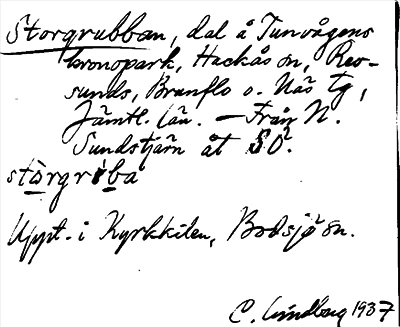 Storgrubban, dal å Tunvågens
kronopark, Hackås sn, Rev-
sunds, Brunflo o. Näs tg,
Jämtl. län. — Från N.
Sundstjärn åt SÖ.
Uppt. i Kyrkkilen, Bodsjö sn.
C. Lindberg 1937